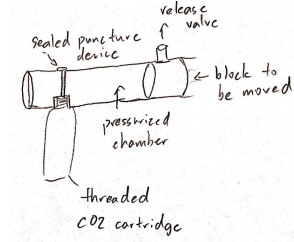 release
valve
sealed puncture
device
block to
be moved
pressurized
chamber
threaded
CO2 cartridge